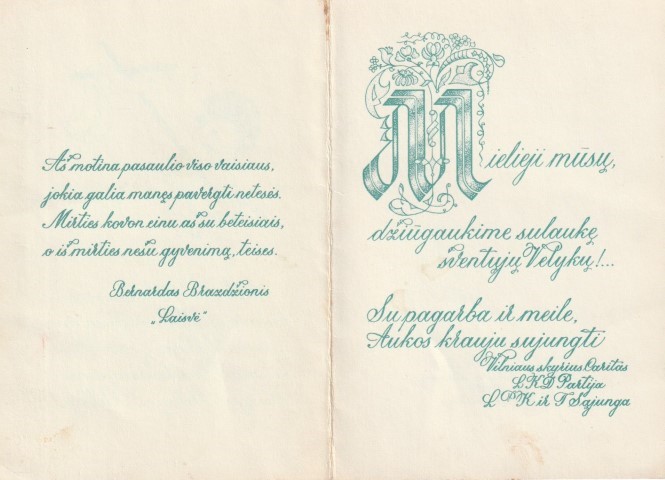 Aš motina pasaulio viso vaisiaus,
jokia galia manęs pavergti netesės.
Mirties kovon einu aš su beteisiais,
o iš mirties nešu gyvenimą, teises.
Bernardas Brazdžionis
„Laisvė"
Mielieji mūsų,
džiūgaukime sulaukę
šventųjų Velykų!...
Su pagarba ir meile,
Aukos krauju sujungti
Vilniaus skyrius Caritas
LKD Partija
L K ir T Sąjunga